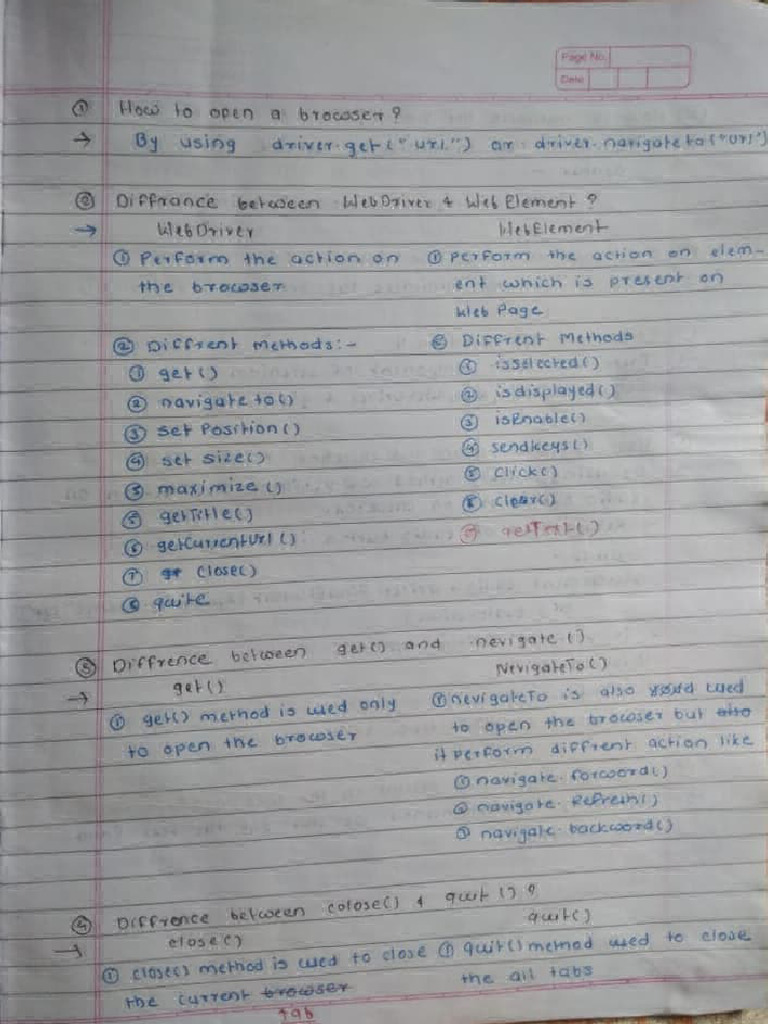 Page No.
Date
① How to open a browser?
→ By using driver.get("url") or driver.navigate to("url")
② Diffrance between WebDriver & WebElement?
→ WebDriver WebElement
① Perform the action on ① Perform the action on elem-
the browser ent which is present on
Web Page
② Diffrent methods:- ② Diffrent Methods
① get() ① isSelected()
② navigate to() ② isdisplayed()
③ set Position() ③ isEnable()
④ set size() ④ sendkeys()
③ maximize () ⑤ click()
⑤ getTitle() ⑥ clear()
⑥ getCurrentUrl () ⑦ getText()
⑦ close()
⑧ quite
③ Diffrence between get() and nevigate ()
→ get() NevigateTo()
① get() method is used only ① nevigateTo is also used
to open the browser to open the browser but
it perform diffrent action like
① navigate.forword()
② navigate.Refresh()
③ navigate.backword()
④ Diffrence between colose() & quit ()?
→ close() quit()
① close() method is used to close ① quit() method used to close
the current browser the all tabs
tab